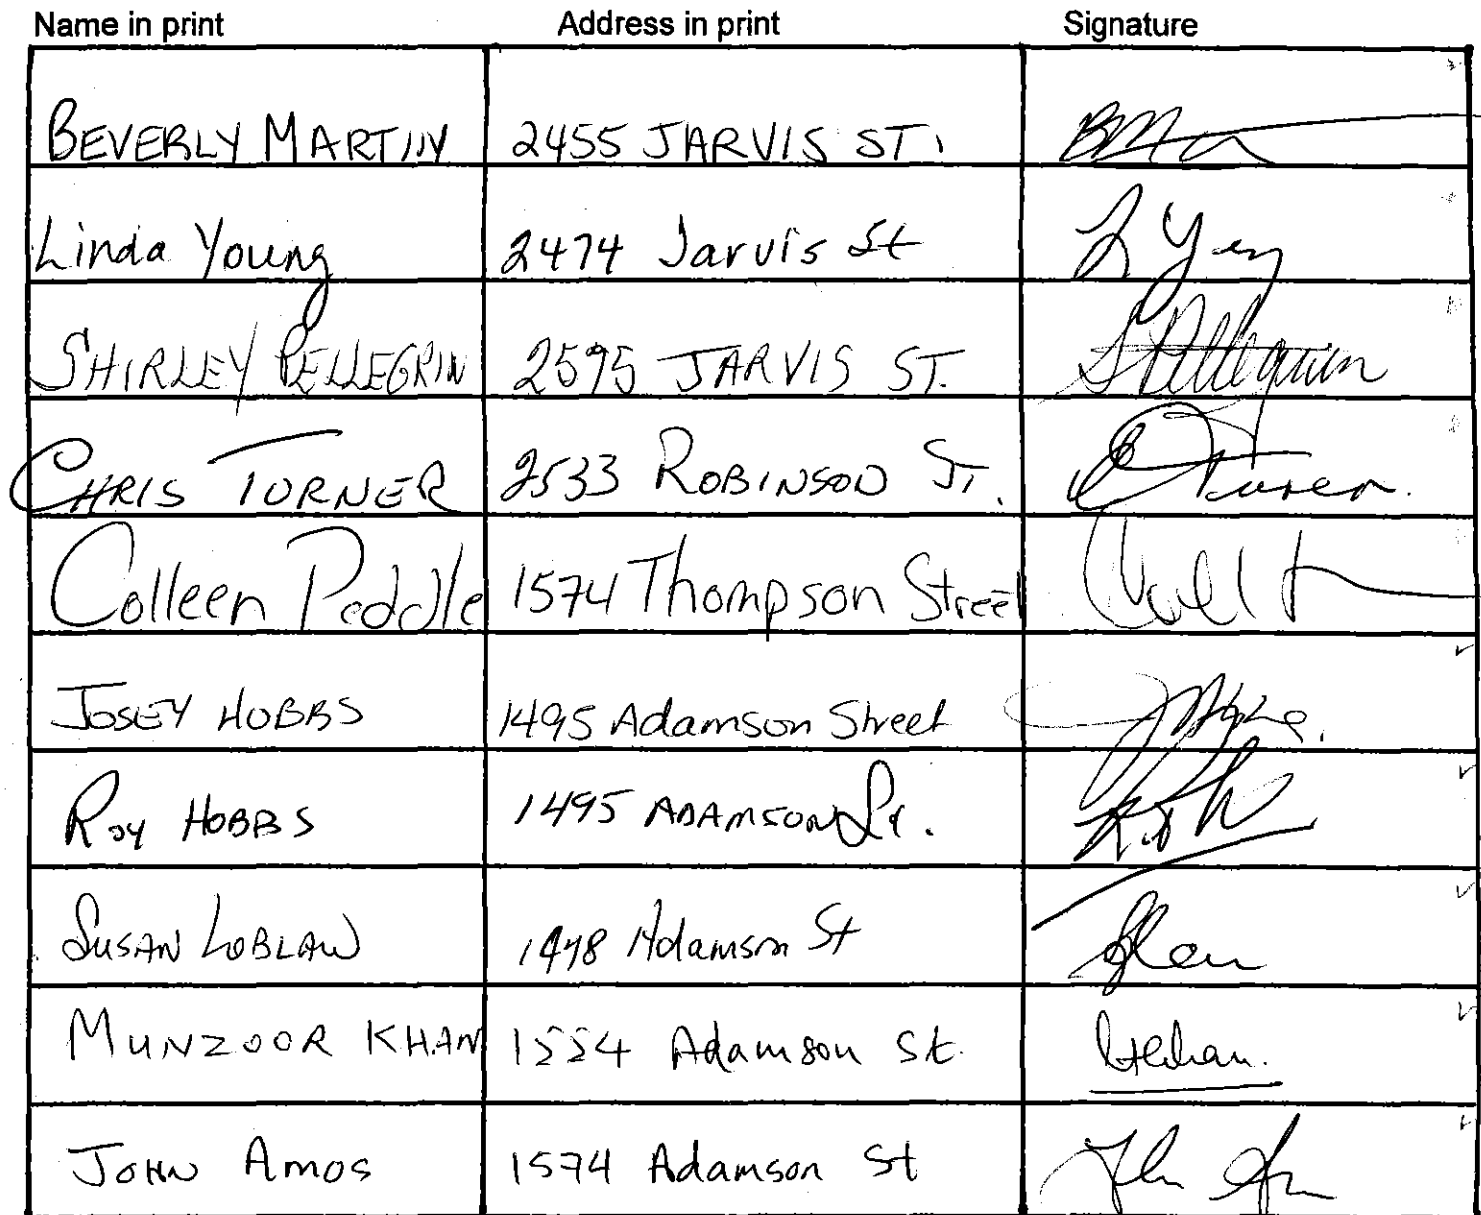 Name in print Address in print Signature
BEVERLY MARTIN 2455 JARVIS ST.
Linda Young 2474 Jarvis St L Yng
SHIRLEY PELLEGRIN 2595 JARVIS ST. S Pellegrin
CHRIS TURNER 2533 ROBINSON ST. C Turner.
Colleen Peddle 1574 Thompson Street
JOSEY HOBBS 1495 Adamson Street
ROY HOBBS 1495 ADAMSON St.
SUSAN LOBLAW 1478 Adamson St
MUNZOOR KHAN 1554 Adamson St.
JOHN AMOS 1574 Adamson St